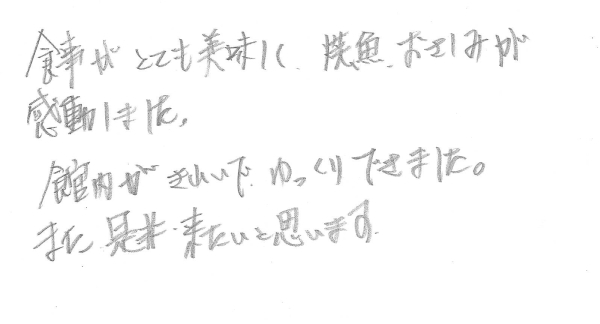 食事がとても美味しく、焼魚、おさしみが
感動しました。
館内がきれいで、ゆっくりできました。
また是非来たいと思います。